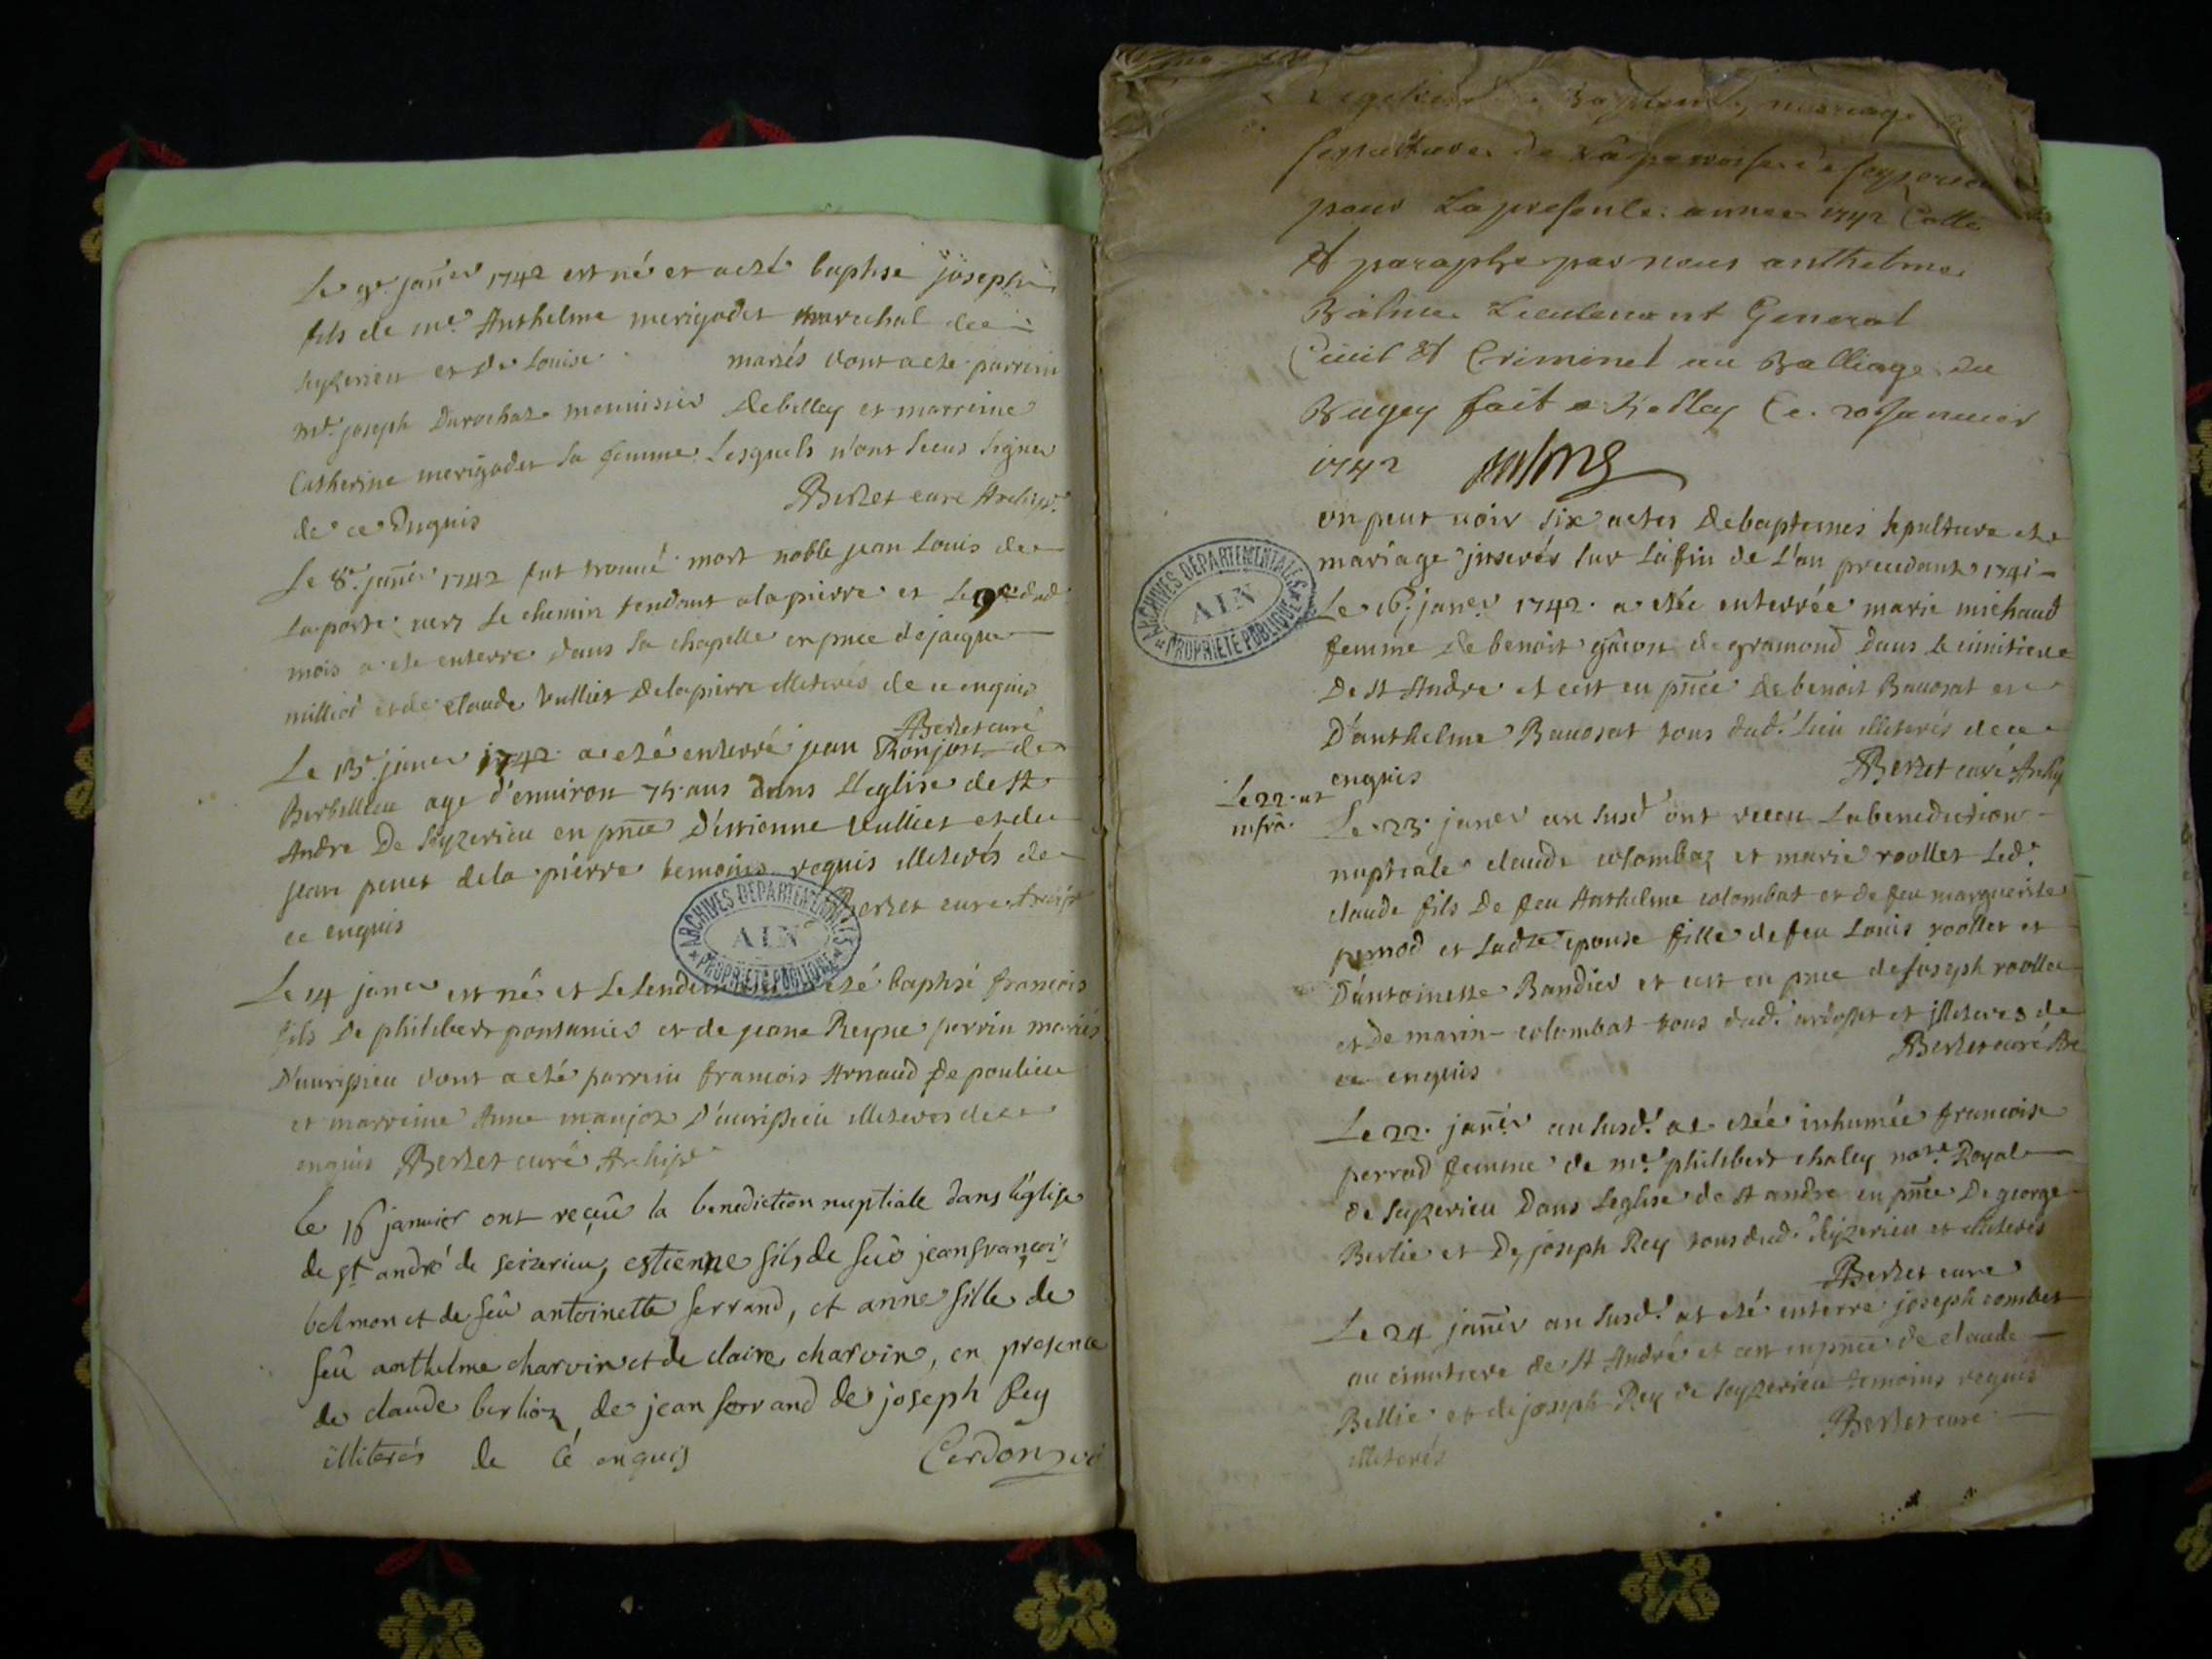 Le 9e janer 1742 est né et a eté baptise joseph
fils de me. Anthelme merigodet marechal de
seyzerieu et de Louise mariés dont a ete parrein
me. joseph Durochat menuisier de belley et marreine
Catherine merigodet sa femme Lesquels n'ont sceus signer
de ce Enquis Berzet curé Archipr.
Le 8e. janer 1742 fut trouué mort noble jean Louis de
La porte vers Le chemin tendant a la pierre et Le 9e dud
mois a ete enterre dans sa chapelle en pnce de jacque
milliod et de claude vulliet de la pierre illiterés de ce enquis
Berzet curé
Le 13e. janer 1742 a eté enterré jean Bonjost de
Berbellieu age d'enuiron 75 ans Dans L'eglise de st
Andre De Seyzerieu en pnce D'estienne vulliet et de
jean penet de la pierre temoins requis illiterés de
ce enquis Berzet cure
Le 14 janer est né et Le Lendemain a eté baptisé francois
fils De philibert pontanier et de jeane Reyne perrin mariés
D'auuissieu dont a eté parrein francois Arnaud De poulieu
et marreine Anne manjot D'auuissieu illiteres de ce
enquis Berzet curé Archipr
le 16 janvier ont reçeu la benediction nuptiale dans l'église
de st andré de seizerieu, estienne fils de feu jean françois
belmon et de feu antoinette ferrand, et anne fille de
feu anthelme charvin et de claire charvin, en presence
de claude berlioz de jean ferrand de joseph Rey
illiterés de cé enquis Cerdon
ARCHIVES DEPARTEMENTALES
AIN
PROPRIETE PUBLIQUE
Baptemes, mariage
sepultures de La paroisse de Seyzerieu
pour La presente année 1742 Cotté
Et paraphé par nous anthelme
Balme Lieutenant General
Ciuil Et Criminel au Balliage du
Bugey fait a Belley Ce 20 Januier
1742 Balme
on peut uoir six actes de baptemes sepulture et
mariage inserés sur La fin de L'an precedant 1741
Le 16e. janer 1742 a etée enterrée marie michaud
femme de benoit gacon de gramond Dans le cimitiere
De st Andre et c'est en pnce de benoit Bauosat et
D'anthelme Bauosat tous dud. Lieu illiterés de ce
enquis Berzet curé Archip
Le 22 ut
infra.
Le 23 janer an susd ont receu La benediction
nuptiale claude colombaz et marie roollet Led.
claude fils De feu Anthelme colombat et de feu marguerite
pernod et Ladte epouse fille de feu Louis roollet et
D'antoinette Bandier et c'est en pnce de joseph roollet
et De marin colombat tous dud. ardosset et illiteres de
ce enquis Berzet curé
Le 22 janer an susd. at etée inhumée francoise
perrod femme de me. philibert chaley nore. Royal
de seyzerieu Dans L'eglise de st andre en pnce De george
Berlie et De joseph Rey tous dud. seyzerieu et illiterés
Berzet cure
Le 24 janer an susd. at eté enterré joseph combet
au cimitiere de st André et c'est en pnce de claude
Bellie et de joseph Rey de seyzerieu temoins requis
illiterés Berzet curé
ARCHIVES DEPARTEMENTALES
AIN
PROPRIETE PUBLIQUE